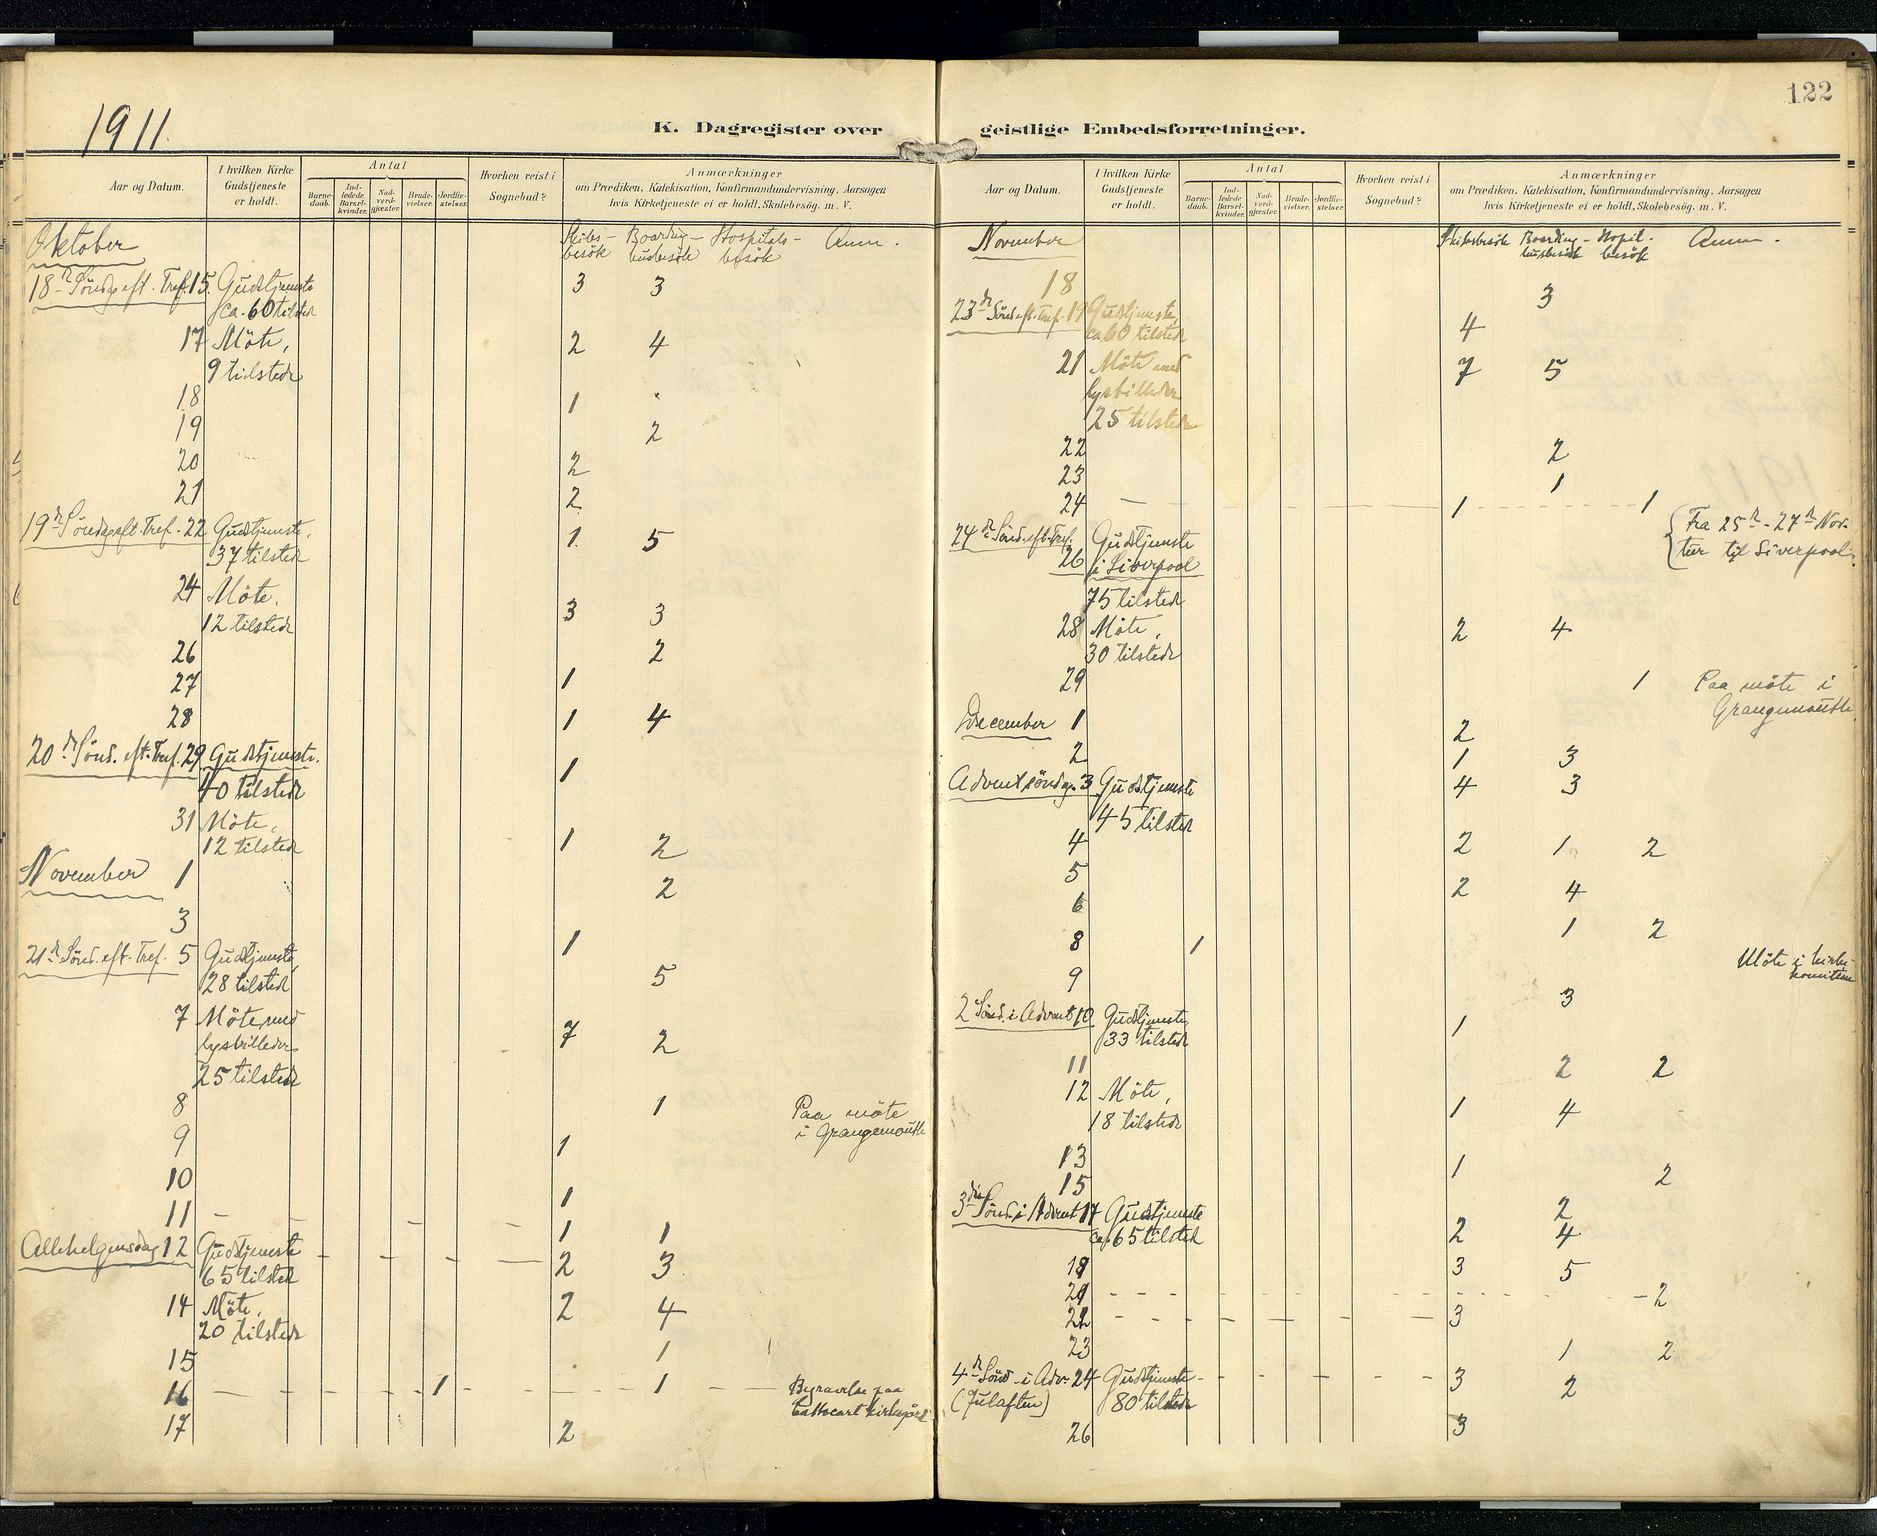 1911.
122
K. Dagregister over geistlige Embedsforretninger.
Aar og Datum.
I hvilken Kirke Gudstjeneste er holdt.
Antal
Barnedaab.
Indledede Barselkvinder.
Nadverdgjæster.
Brudevielser.
Jordfæstelser.
Hvorhen reist i Sognebud?
Anmærkninger
om Prædiken, Katekisation, Konfirmandundervisning. Aarsagen
hvis Kirketjeneste ei er holdt, Skolebesøg. m. V.
Oktober
Skibsbesök Boardinghusbesök Hospitalsbesök Anm.
18de Söndag eft. Tref. 15. Gudstjeneste 3 3
ca. 60 tilstede
17 Möte, 2 4
9 tilstede
18 1
19 2
20 2
21 2
19de Söndag eft. Tref. 22 Gudstjeneste, 1 5
37 tilstede
24 Möte, 3 3
12 tilstede
26 2
27 1
28 1 4
20de Sönd. eft. Tref. 29 Gudstjeneste. 1
40 tilstede
31 Möte, 1 2
12 tilstede
November 1 2
3 1
21de Sönd. eft. Tref. 5 Gudstjeneste, 5
28 tilstede
7 Möte med 7 2
lysbilleder
25 tilstede
8 1 Paa möte
i Grangemouth
9 1
10 1
11 1 1
Allehelgensdag 12 Gudstjeneste 2 3
65 tilstede
14 Möte, 2 4
20 tilstede
15 1
16 1 1 Begravelse paa
Cathcart kirkegård
17 2
Aar og Datum.
I hvilken Kirke Gudstjeneste er holdt.
Antal
Barnedaab.
Indledede Barselkvinder.
Nadverdgjæster.
Brudevielser.
Jordfæstelser.
Hvorhen reist i Sognebud?
Anmærkninger
om Prædiken, Katekisation, Konfirmandundervisning. Aarsagen
hvis Kirketjeneste ei er holdt, Skolebesøg. m. V.
November
Skibsbesök Boardinghusbesök Hospit.besök Anm.
18 3
23de Sönd. eft. Tref. 19 Gudstjeneste, 4
ca. 60 tilstede
21 Möte med 7 5
lysbilleder
25 tilstede
22 2
23 1
24 1 1
24de Sönd. eft. Tref. Gudstjeneste Fra 25de - 27de Nov.
26 i Liverpool tur til Liverpool.
75 tilstede
28 Möte, 2 4
30 tilstede
29 1 Paa möte i
Grangemouth.
December 1 2
2 1 3
Adventsöndag. 3 Gudstjeneste 4 3
45 tilstede
4 2 1 2
5 2 4
6 1 2
8 1 Möte i kirkekomiteen
9 3
2 Sönd. i Advent 10 Gudstjeneste, 1
33 tilstede
11 2 2
12 Möte, 1 4
18 tilstede
13 1 2
15 2
3die Sönd. i Advent 17 Gudstjeneste 2 4
ca. 65 tilstede
19 3 5
21 2
22 3
23 1 2
4de Sönd. i Adv. 24 Gudstjeneste 3 2
(Julaften) 80 tilstede
26 3